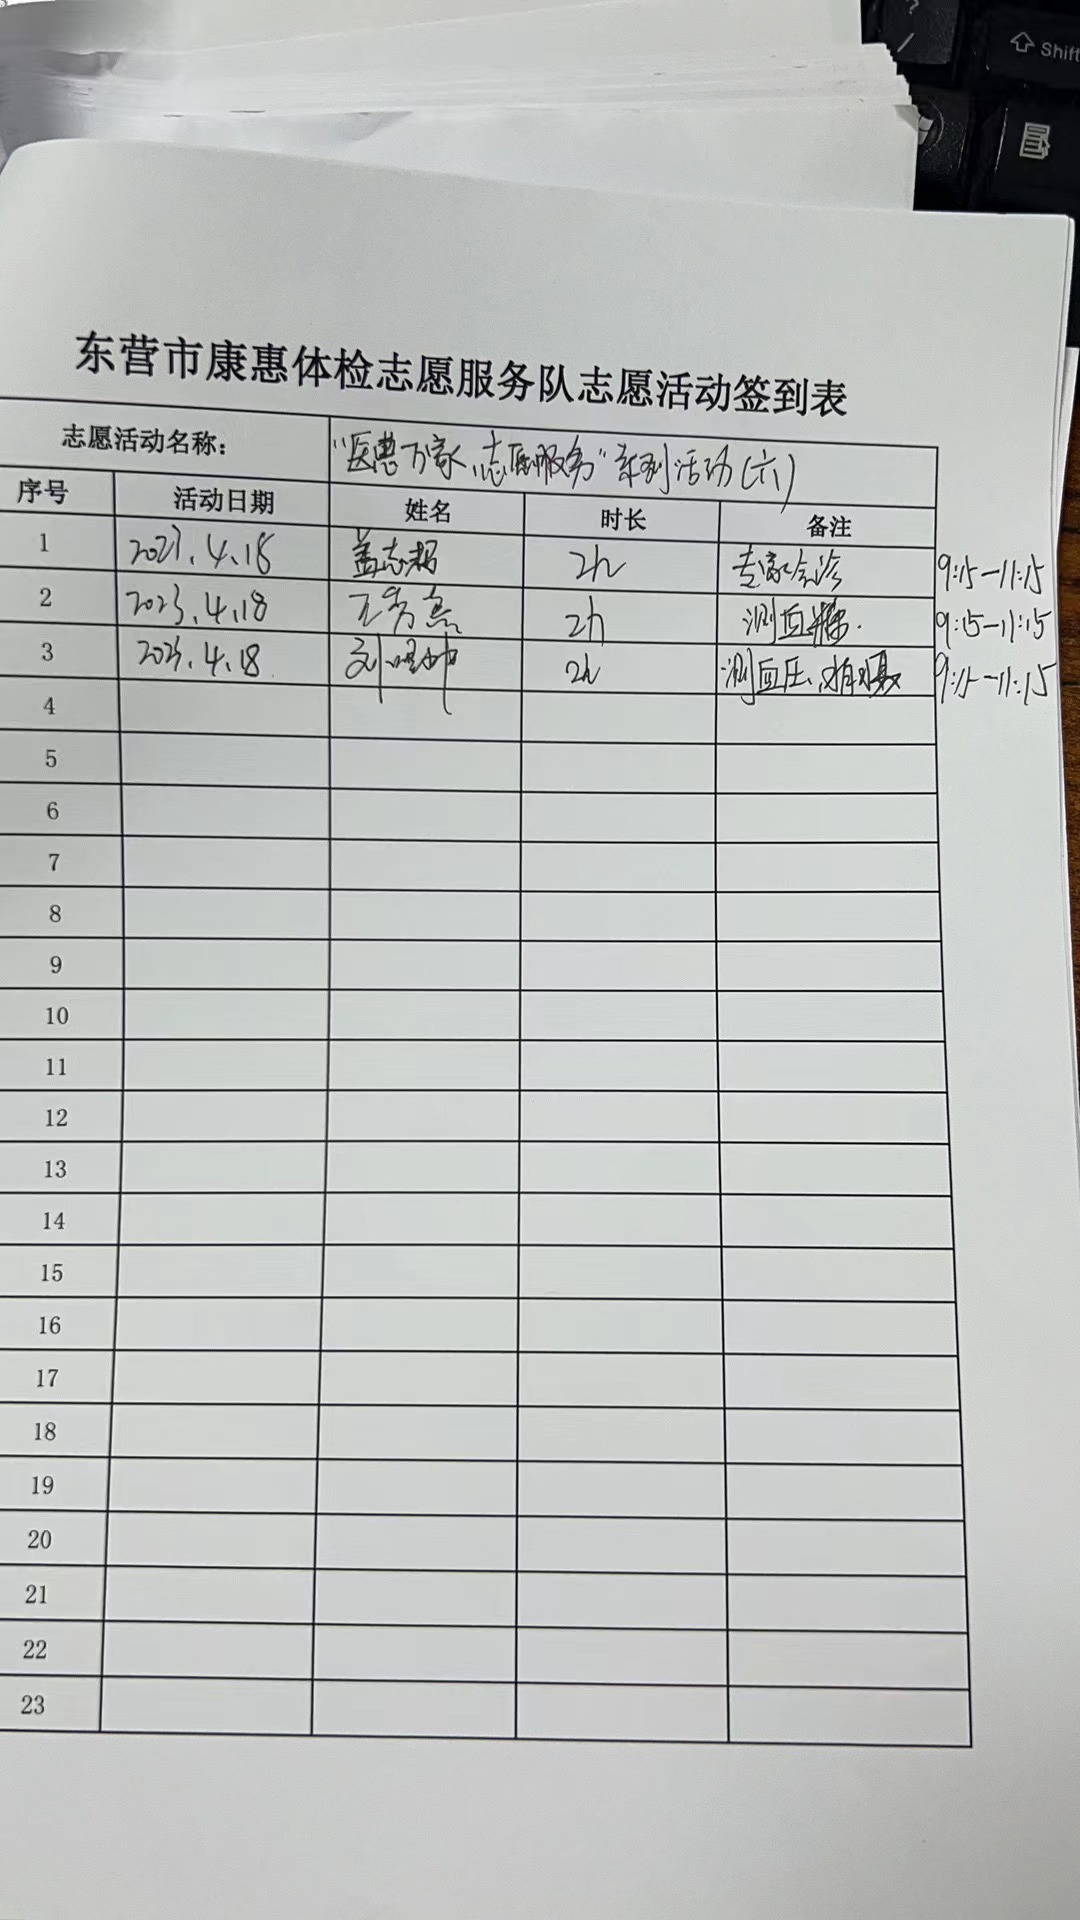 东营市康惠体检志愿服务队志愿活动签到表
志愿活动名称: "医惠万家,志愿服务"系列活动(六)
序号 活动日期 姓名 时长 备注
1 2023.4.18 盖志 2h 专家会诊 9:15-11:15
2 2023.4.18 2h 测血糖. 9:15-11:15
3 2023.4.18 刘 2h 测血压、 9:15-11:15
4
5
6
7
8
9
10
11
12
13
14
15
16
17
18
19
20
21
22
23
? /
Shift